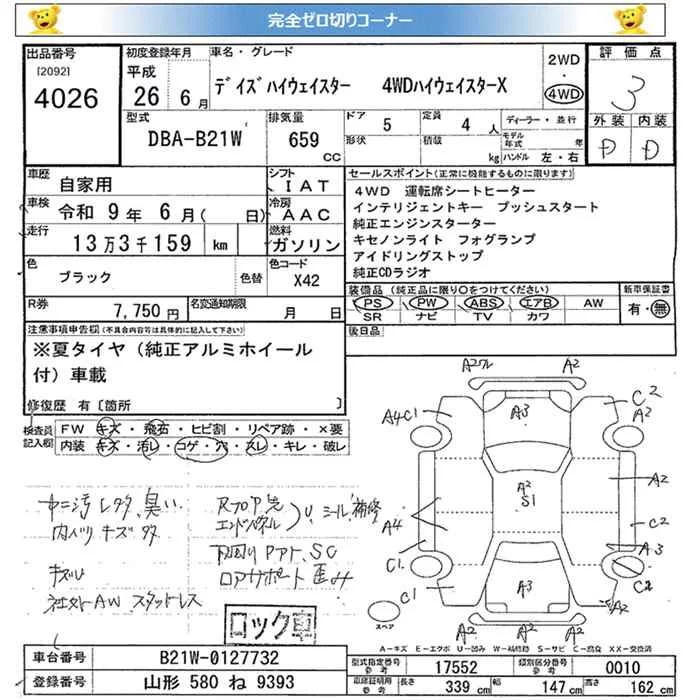 完全ゼロ切りコーナー
出品番号
[2092]
4026
初度登録年月
平成
26 6月
車名・グレード
デイズハイウェイスター 4WDハイウェイスターX
2WD
・
4WD
評価点
3
外装 内装
D D
型式
DBA-B21W
排気量
659
CC
ドア
5
定員
4人
形状
積載
kg
ディーラー・並行
モデル年式 年
ハンドル 左・右
車歴
自家用
シフト
IAT
車検
令和9年6月( 日)
冷房
AAC
走行
13万3千159 km
燃料
ガソリン
色
ブラック
色替
色コード
X42
R券
7,750円
名変通知期限
月 日
セールスポイント(正常に機能するものに限ります)
4WD 運転席シートヒーター
インテリジェントキー プッシュスタート
純正エンジンスターター
キセノンライト フォグランプ
アイドリングストップ
純正CDラジオ
装備品(純正品に限り○をつけてください)
PS PW ABS エアB AW
SR ナビ TV カワ
新車保証書
有・無
後日品
注意事項申告欄(不具合内容等は具体的に記入して下さい)
※夏タイヤ(純正アルミホイール
付)車載
修復歴 有〔箇所 〕
検査員記入欄
FW キズ・飛石・ヒビ割・リペア跡・×要
内装 キズ・汚レ・コゲ・穴・スレ・キレ・破レ
内ハリ キズ 多
キズU
社外AW スタッドレス
エンドパネル
シール補修
下回り
ロアサポート 歪み
ロック車
A2 A2
A4 C1 A3 C2
A2
A2
S1
A2
A4 C2
C1 A3
C1 A3 C2
A2 A2 A2
スペア
A-キズ E-エクボ U-凹み W-補修跡 S-サビ C-腐食 XX-交換済
車台番号
B21W-0127732
登録番号
山形 580 ね 9393
型式指定番号
参考
17552
類別区分番号
参考
0010
車庫証明用
参考
長さ 339 cm 幅 147 cm 高さ 162 cm